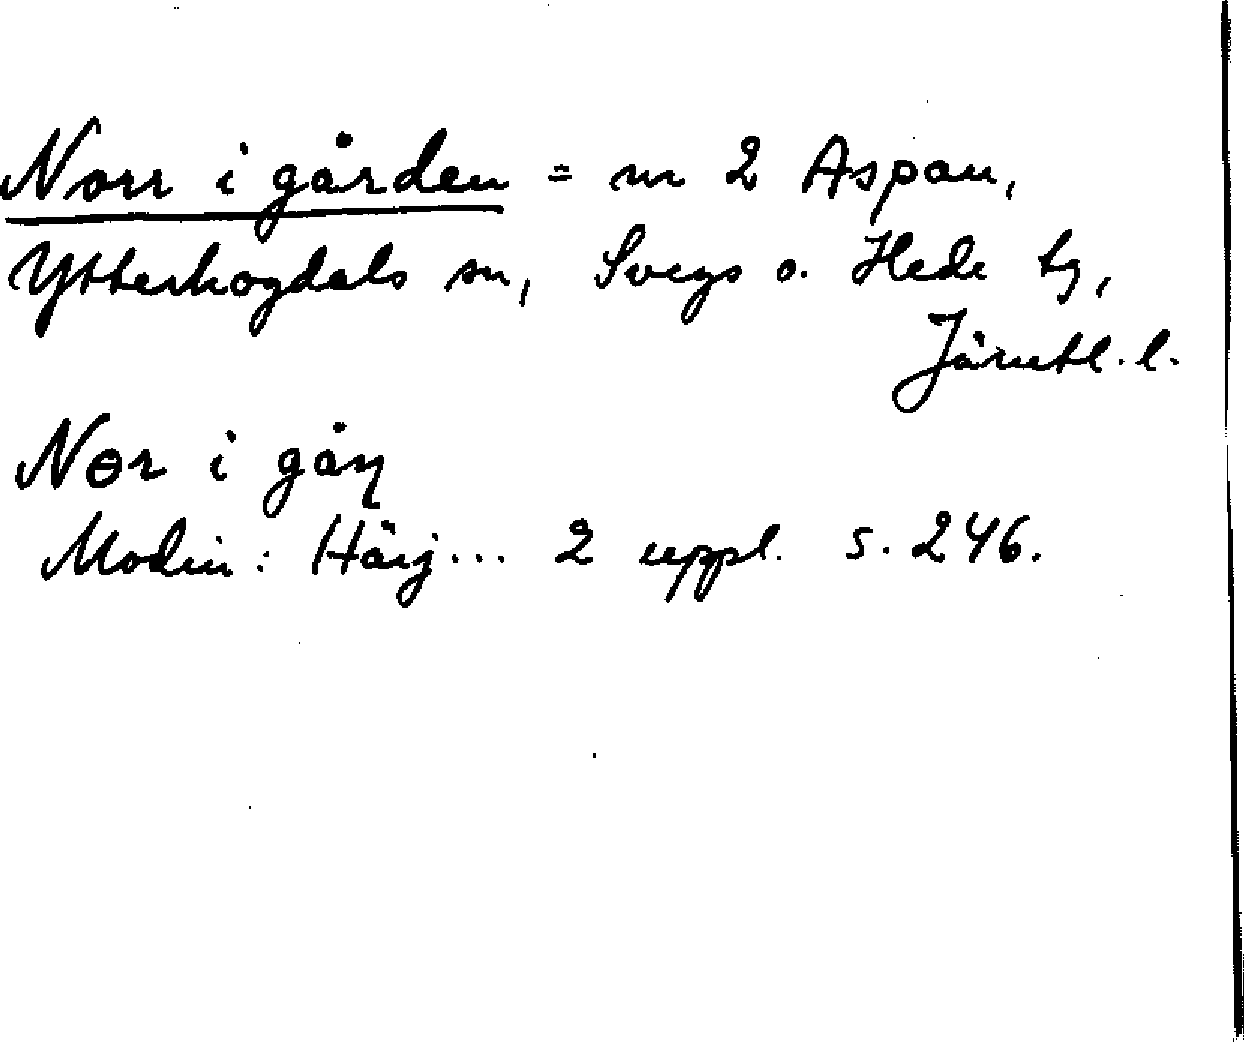 Norr i gården = nr 2 Aspan,
Ytterhogdals sn, Svegs o. Hede tg,
Jämtl. l.
Nɵr i gåɳ
Modin: Härj... 2 uppl. s. 246.